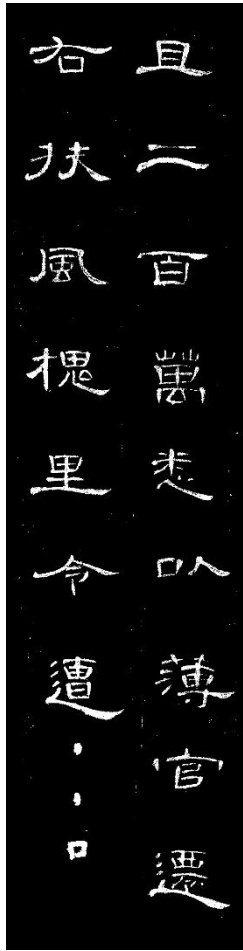 且二百萬悉以薄官遷
右扶風槐里令遭